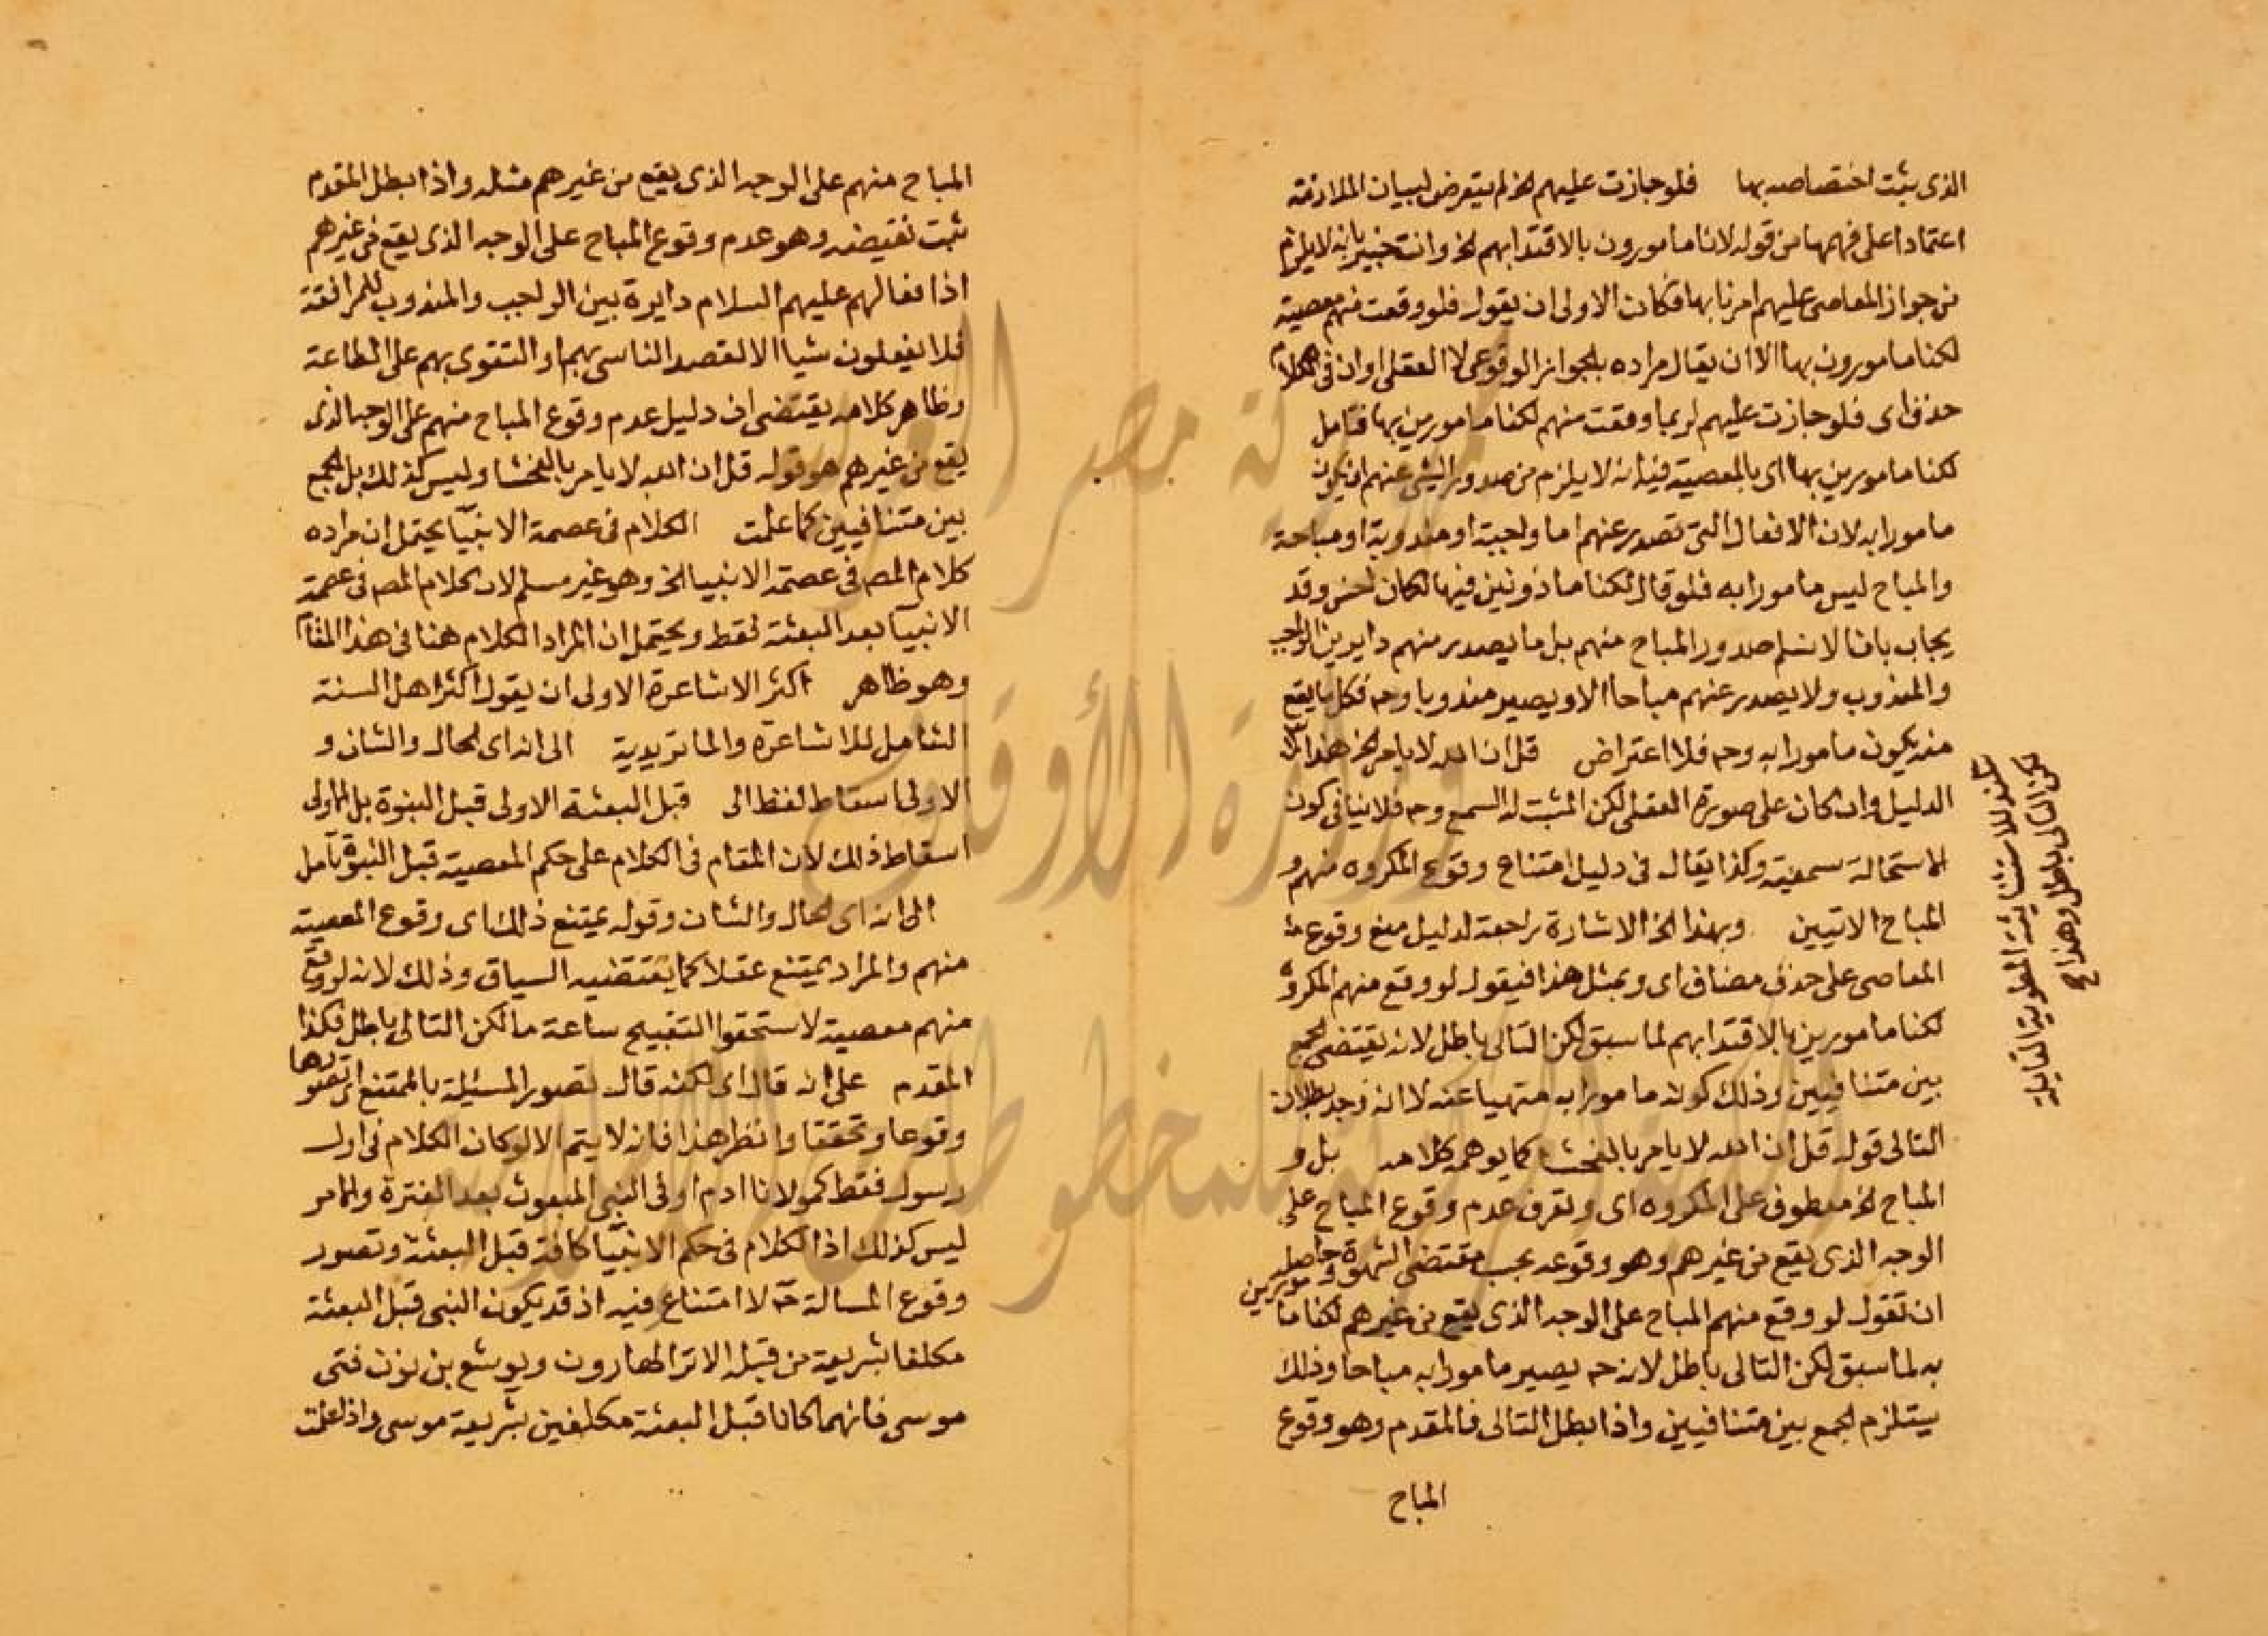 الذى يثبت اختصاصه بها فلو جازت عليهم الخ لم يتعرض لبيان الملازمة
اعتمادا على فهمها من قوله لاننا مامورون بالاقتدا بهم الخ وانت خبير بانه لا يلزم
من جواز المعاصى عليهم امرنا بها فكان الاولى ان يقول فلو وقعت منهم معصية
لكنا مامورون بها الا ان يقال مراده بالجواز الوقوعى لا العقلى او ان فى الكلام
حذف اى فلو جازت عليهم لربما وقعت منهم لكنا مامورين بها فتامل
لكنا مامورين بها اى بالمعصية فيه انه لا يلزم من صدور الشى عنهم ان يكون
مامورا به لان الافعال التى تصدر عنهم اما واجبة او مندوبة او مباحة
والمباح ليس مامورا به فلو قال لكنا ماذونين فيها لكان احسن وقد
يجاب بانا لا نسلم صدور المباح منهم بل ما يصدر منهم داير بين الواجب
والمندوب ولا يصدر عنهم مباحا الا ويصير مندوبا وح فكل ما يقع
منه يكون مامورا به وح فلا اعتراض قل ان الله لا يامر الخ هذا
الدليل وان كان على صورة العقلى لكن المثبت له السمع وح فلا ينافى كون
الاستحالة سمعية وكذا يقال فى دليل امتناع وقوع المكروه منهم و
المباح الاتيين وبهذا الخ الاشارة راجعة لدليل منع وقوع
المعاصى على حذف مضاف اى وبمثل هذا فيقول لو وقع منهم المكروه
لكنا مامورين بالاقتدا بهم لما سبق لكن التالى باطل لانه يقتضى الجمع
بين متنافيين وذلك كونه مامورا به منهيا عنه لا انه وجه بطلان
التالى قوله قل ان الله لا يامر بالفحشا كما يوهمه كلامه بل و
المباح الخ معطوف على المكروه اى وتعرف عدم وقوع المباح على
الوجه الذى يقع من غيرهم وهو وقوعه بحسب مقتضى الشهوة وحاصله
ان تقول لو وقع منهم المباح على الوجه الذى يقع من غيرهم لكنا مامورين
به لما سبق لكن التالى باطل لانه ح يصير مامورا به مباحا وذلك
يستلزم الجمع بين متنافيين واذا بطل التالى فالمقدم وهو وقوع
المباح
للاستثنائية المطوية القايلة
لكن التالى باطل وهذا
المباح منهم على الوجه الذى يقع من غيرهم مثله واذا بطل المقدم
ثبت نقيضه وهو عدم وقوع المباح على الوجه الذى يقع من غيرهم
اذا فعالهم عليهم السلام دايرة بين الواجب والمندوب
فلا يفعلون شيا الا لقصد الناسى بهم او التقوى بهم على الطاعة
وظاهر كلامه يقتضى ان دليل عدم وقوع المباح منهم على الوجه الذى
يقع من غيرهم هو قوله قل ان الله لا يامر بالفحشا وليس كذلك بل الجمع
بين متنافيين كما علمت الكلام فى عصمة الانبيا يحتمل ان مراده
كلام المص فى عصمة الانبيا الخ وهو غير مسلم لان كلام المص فى عصمة
الانبيا بعد البعثة فقط ويحتمل ان المراد الكلام هنا فى هذا المقام
وهو ظاهر اكثر الاشاعرة الاولى ان يقول اكثر اهل السنة
الشامل للاشاعرة والماتريدية الى انه اى الحال والشان و
الاولى اسقاط لفظ الى قبل البعثة الاولى قبل النبوة بل الاولى
اسقاط ذلك لان المقام فى الكلام على حكم المعصية قبل النبوة تامل
الى انه اى الحال والشان وقوله يمتنع ذلك اى وقوع المعصية
منهم والمراد يمتنع عقلا كما يقتضيه السياق وذلك لانه لو وقع
منهم معصية لاستحقوا التقبيح ساعة ما لكن التالى باطل فكذا
المقدم على انه قال اى لكنه قال تصور المسئلة بالممتنع اى تصورها
وقوعا وتحققا وانظر هذا فانه لا يتم الا لو كان الكلام فى اول
رسول فقط كمولانا ادم او فى النبى المبعوث بعد الفترة والامر
ليس كذلك اذ الكلام فى حكم الانبيا كافة قبل البعثة وتصور
وقوع المسالة ح لا امتناع فيه اذ قد يكون النبى قبل البعثة
مكلفا بشريعة من قبله الا ترا لهارون ويوشع بن نون فتى
موسى فانهما كانا قبل البعثة مكلفين بشريعة موسى واذا علمت